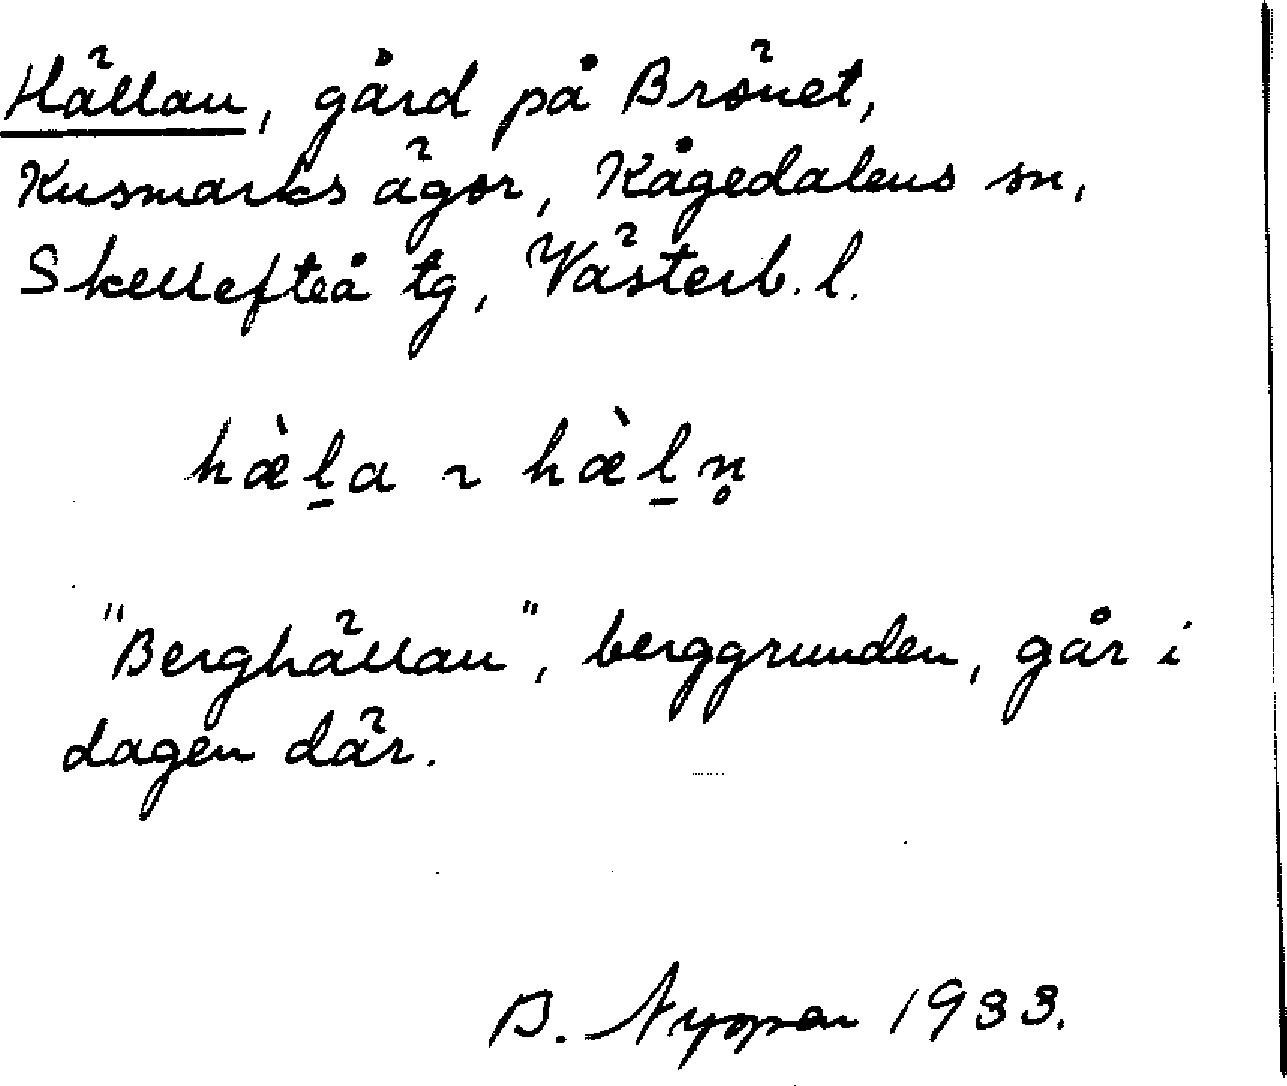 Hällan, gård på Brönet,
Kusmarks ägor, Kågedalens sn,
Skellefteå tg, Västerb. l.
hæ̀l̠a ~ hæ̀l̠n̥
"Berghällan", berggrunden, går i
dagen där.
B. Nyman 1933.